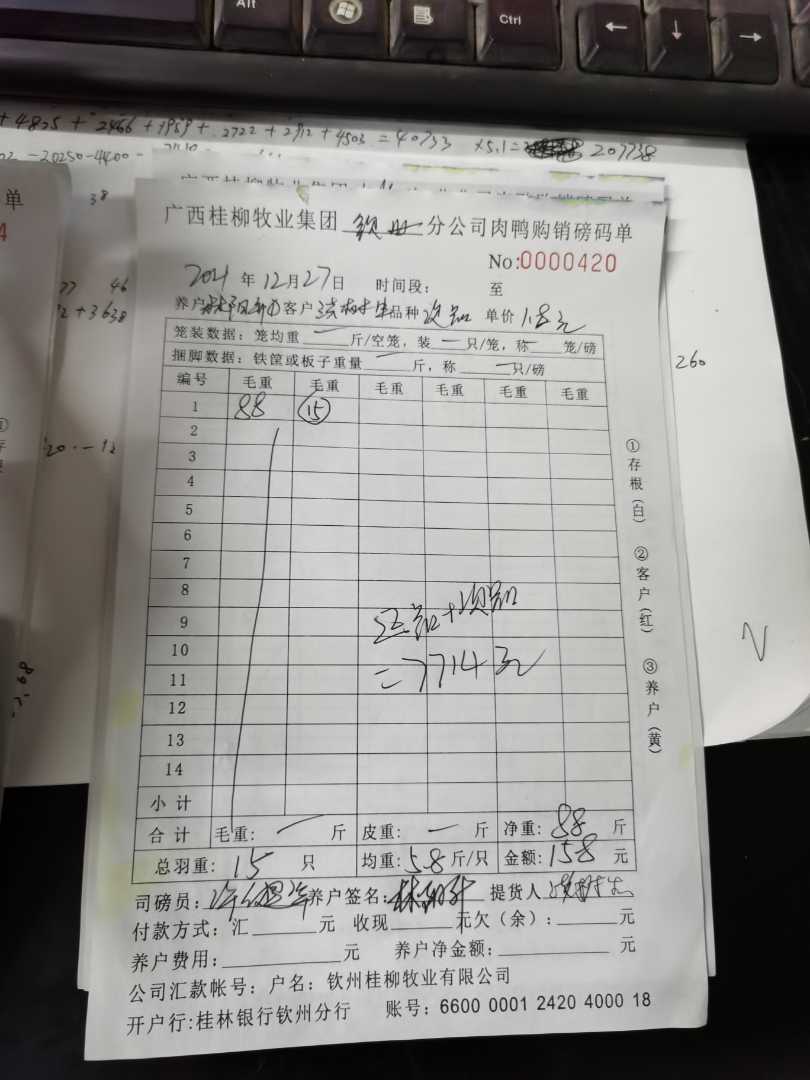 Alt
Ctrl
← ↓ →
+ 4825 + 2466 + 1959 + 2722 + 2912 + 4503 = 40733 ×5.1= 207738
-20250-4400-
38
单
广西桂柳牧业集团 钦州 分公司肉鸭购销磅码单
No:0000420
2021 年 12 月 27 日 时间段: 至
养户 客户 品种 次品 单价 1.8元
笼装数据: 笼均重 一 斤/空笼, 装 一 只/笼, 称 一 笼/磅
捆脚数据: 铁筐或板子重量 一 斤, 称 一 只/磅
编号 毛重 毛重 毛重 毛重 毛重 毛重
1 88 ⑮
2
3
4
5
6
7
8
9
10
11
12
13
14
正品+次品
=7714元
小计
合计 毛重: 一 斤 皮重: 一 斤 净重: 88 斤
总羽重: 15 只 均重: 5.8 斤/只 金额: 158 元
司磅员: 养户签名: 提货人
付款方式: 汇 元 收现 元欠(余): 元
养户费用: 元 养户净金额: 元
公司汇款帐号: 户名: 钦州桂柳牧业有限公司
开户行:桂林银行钦州分行 账号: 6600 0001 2420 4000 18
①存根(白) ②客户(红) ③养户(黄)
77 46
2+3638
20.-12
260